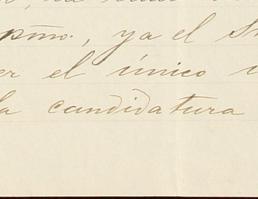 pmo., ya el
el único
la candidatura